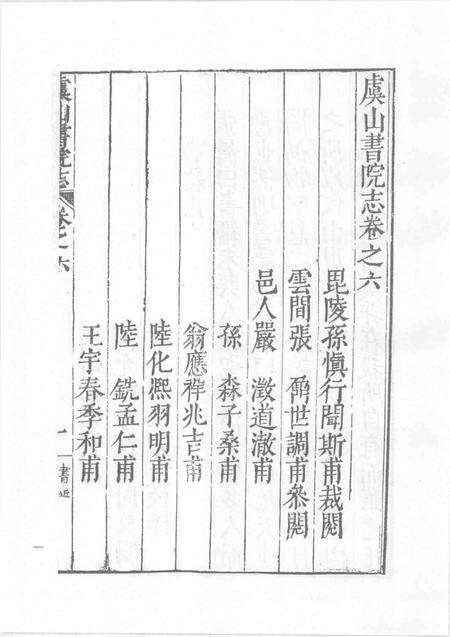 虞山書院志卷之六
毘陵孫慎行聞斯甫裁閱
雲間張鼐世調甫叅閱
邑人嚴澂道澈甫
孫森子桑甫
翁應祥兆吉甫
陸化熙羽明甫
陸銑孟仁甫
王宇春季和甫
虞山書院志 卷之六 一 書近